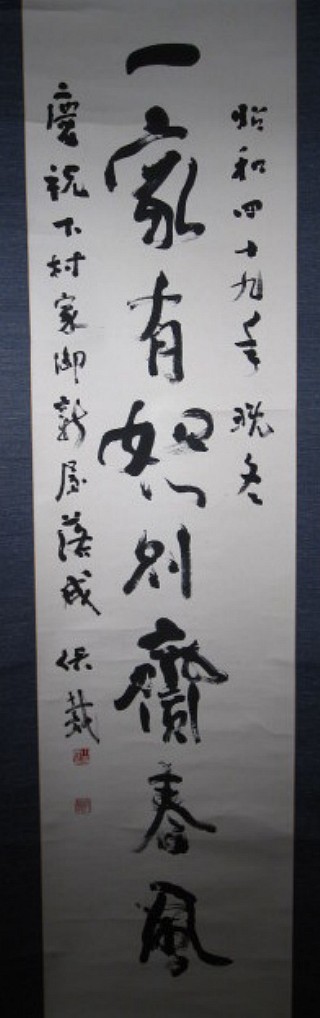 昭和四十九年晩冬
一家有恕則齎春風
慶祝下村家御新屋落成 保